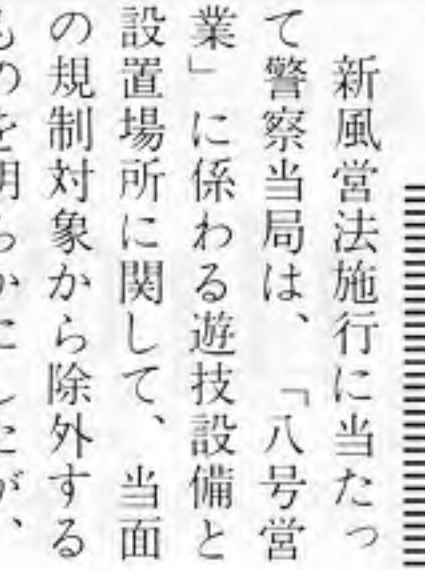 新風営法施行に当たっ
て警察当局は、「八号営
業」に係わる遊技設備と
設置場所に関して、当面
の規制対象から除外する
ものを明らかにしたが、